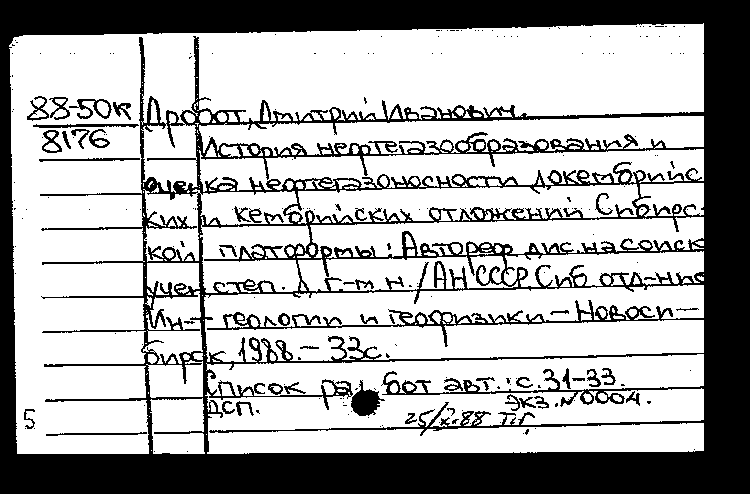 88-50к Дробот, Дмитрий Иванович.
8176
История нефтегазообразования и
оценка нефтегазоносности докембрийс
ких и кембрийских отложений Сибирс-
кой платформы: Автореф дис. на соиск
учен. степ. д. г.-м. н. / АН СССР, Сиб отд-ние
Ин-т геологии и геофизики. - Новоси-
бирск, 1988. - 33с.
Список ра бот авт.: с. 31-33.
ДСП. Экз. N 0004.
5